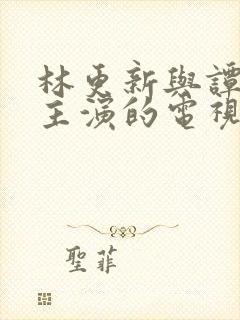 林更新與譚
主演的電視
聖菲